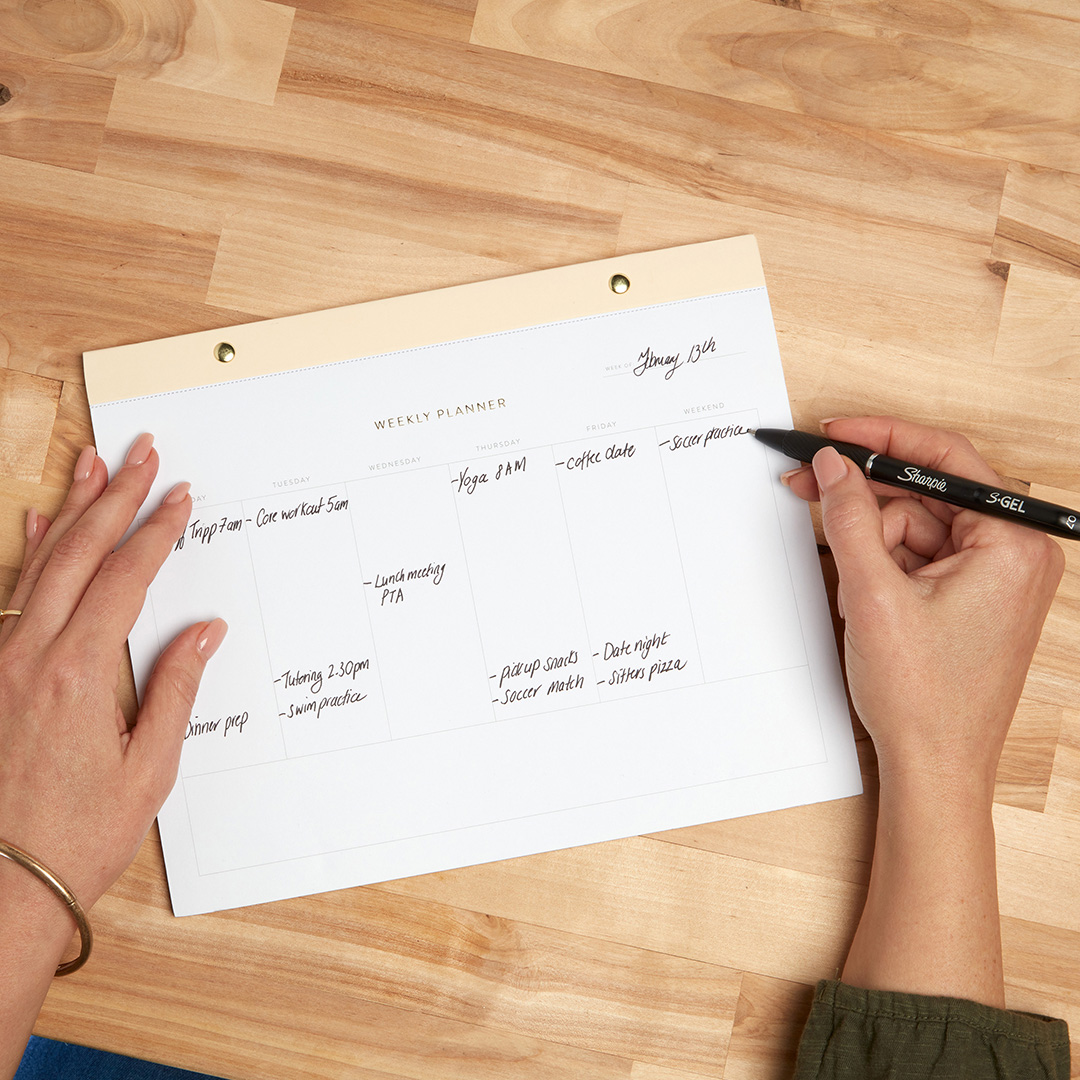 WEEK OF February 13th
WEEKLY PLANNER
DAY
TUESDAY
WEDNESDAY
THURSDAY
FRIDAY
WEEKEND
Tripp 7am
Dinner prep
- Core workout 5am
- Tutoring 2.30pm
- Swim practice
- Lunch meeting
PTA
- Yoga 8AM
- pick up snacks
- Soccer match
- coffee date
- Date night
- Sitters pizza
- Soccer practice
Sharpie
S·GEL
0.7